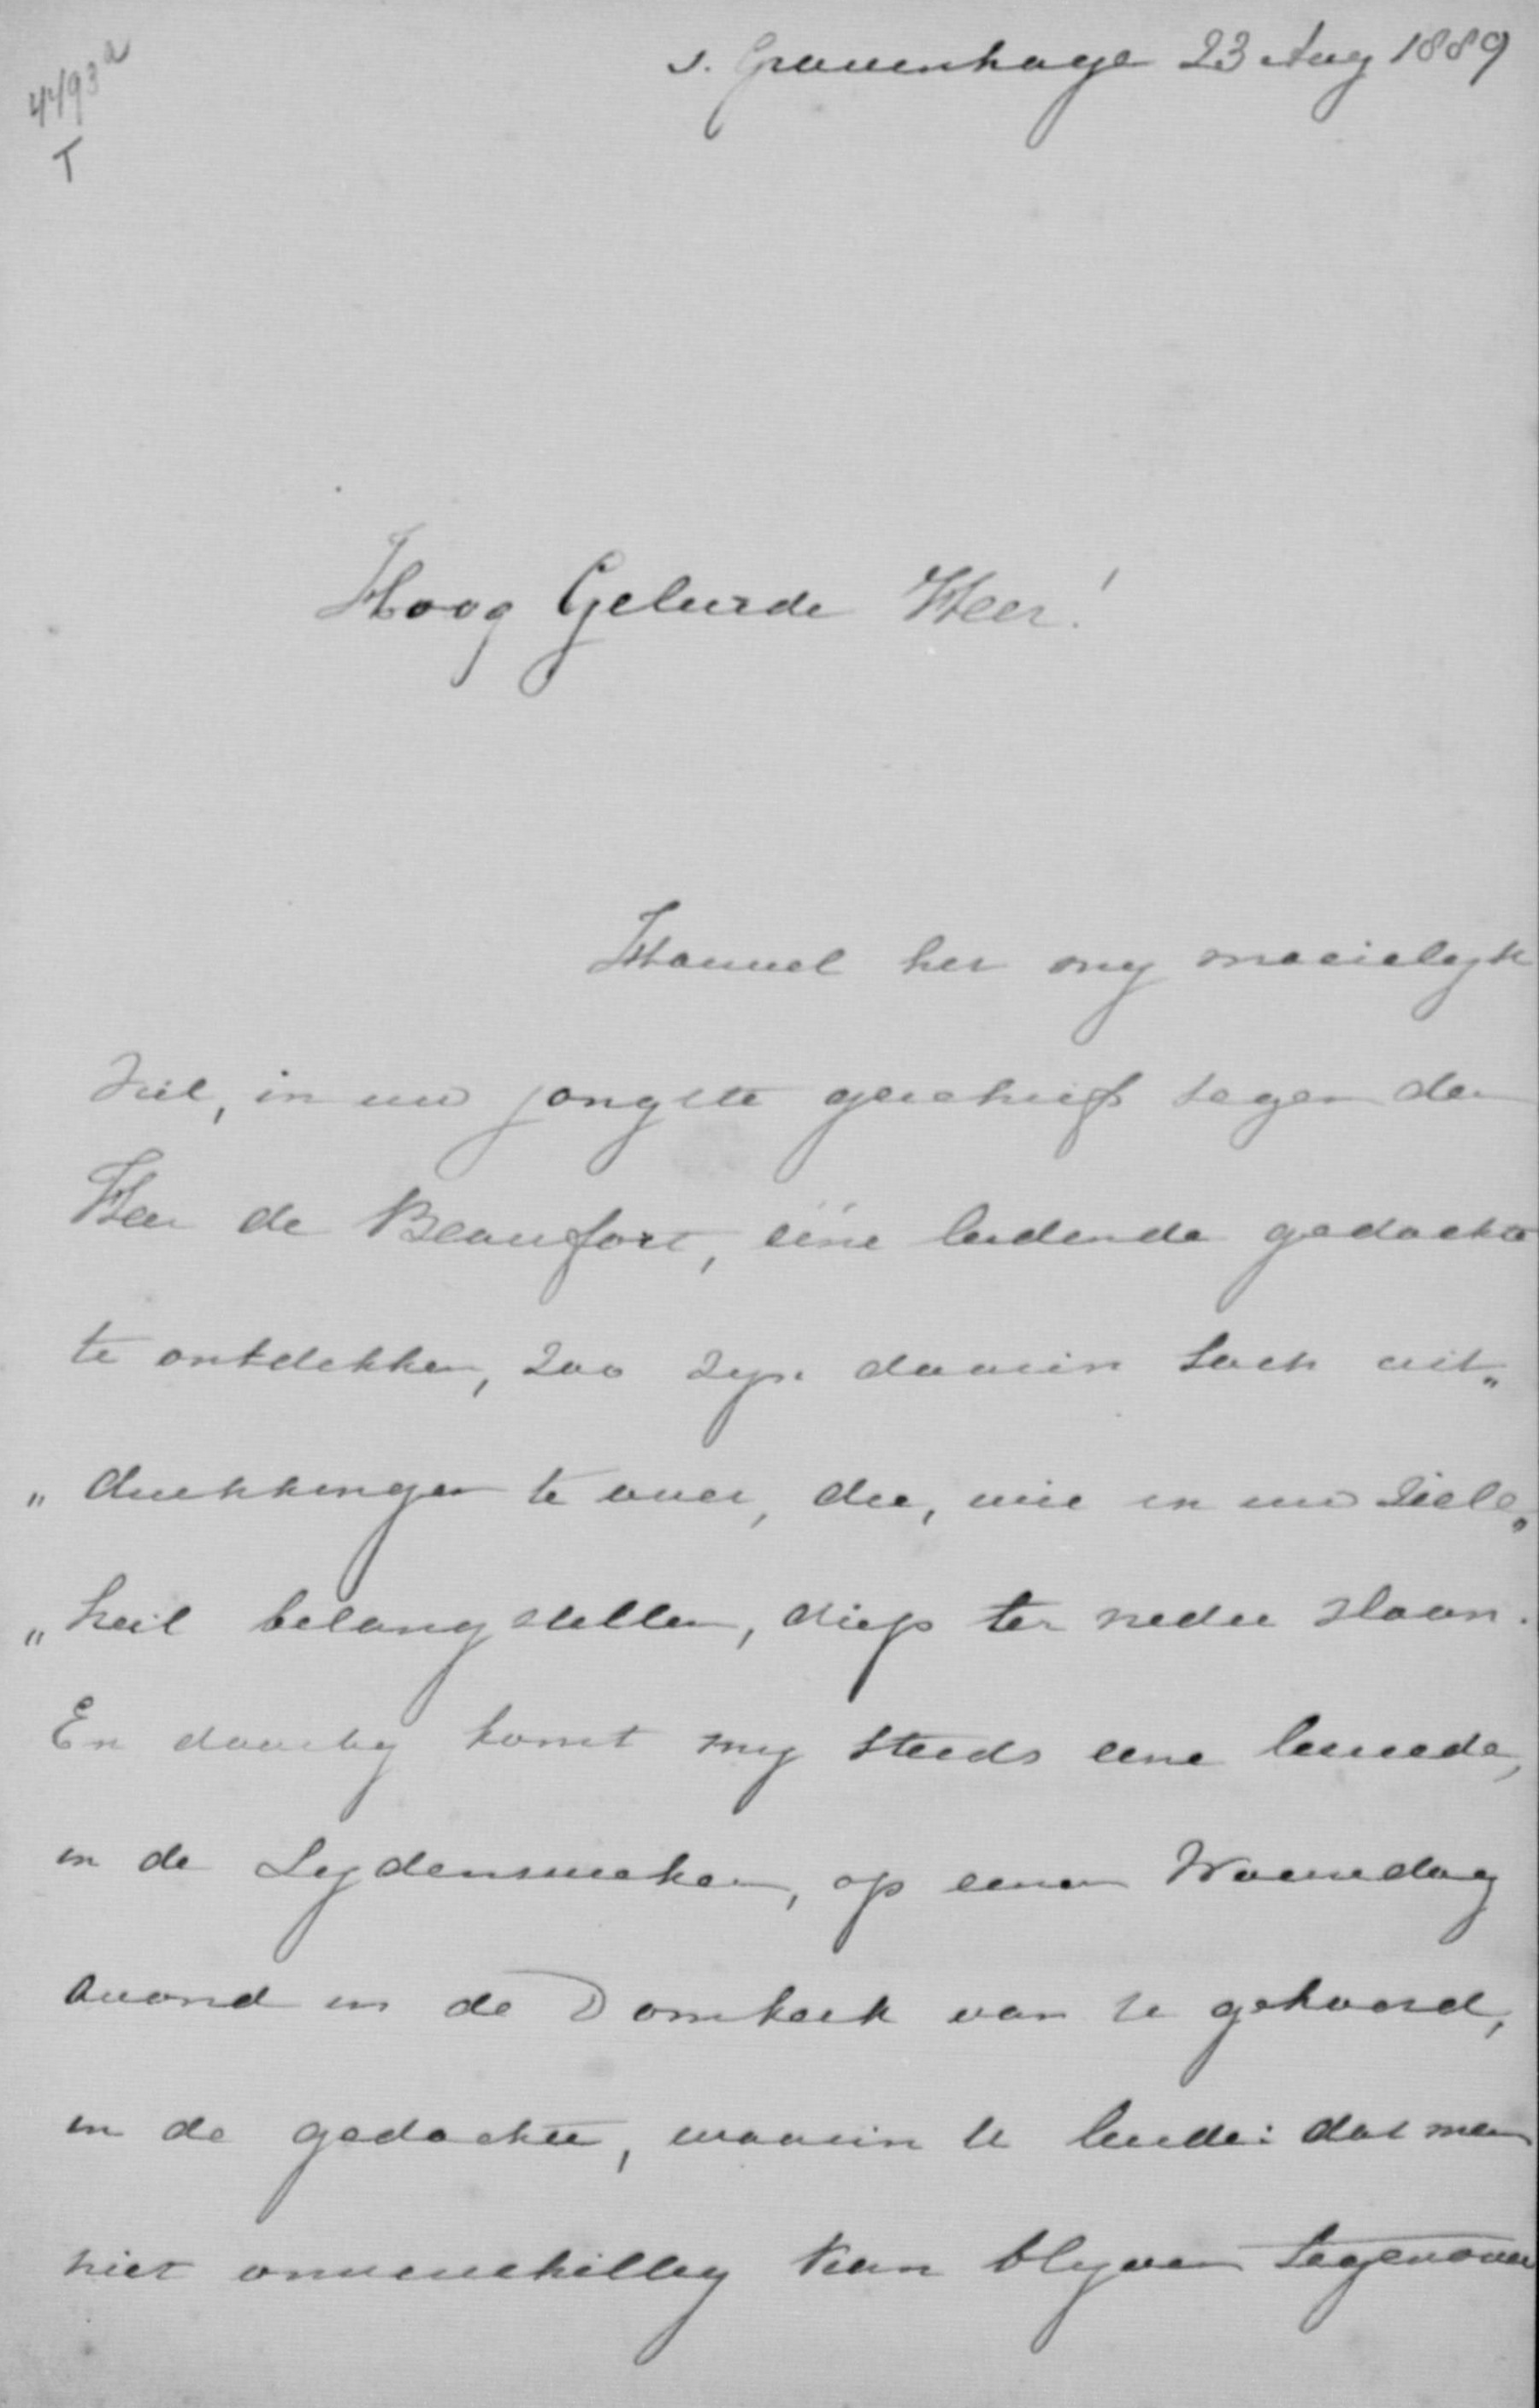 4493a
T
s. Gravenhage 23 Aug 1889
Hoog Geleerde Heer!
Hoewel het my moeielyk
viel, in uw jongste geschrift tegen den
Heer de Beaufort, eéne leidende gedachte
te ontdekken, zoo zyn daarin toch uit„
„drukkingen te over, die, wie in uw ziele„
„heil belangstellen, diep ter neder slaan.
En daarby komt my steeds eene leerrede,
in de Lydensweken, op eenen Woensdag
avond in de Domkerk van U gehoord,
in de gedachte, waarin U leerde: dat men
niet onverschillig kan blyven tegenover